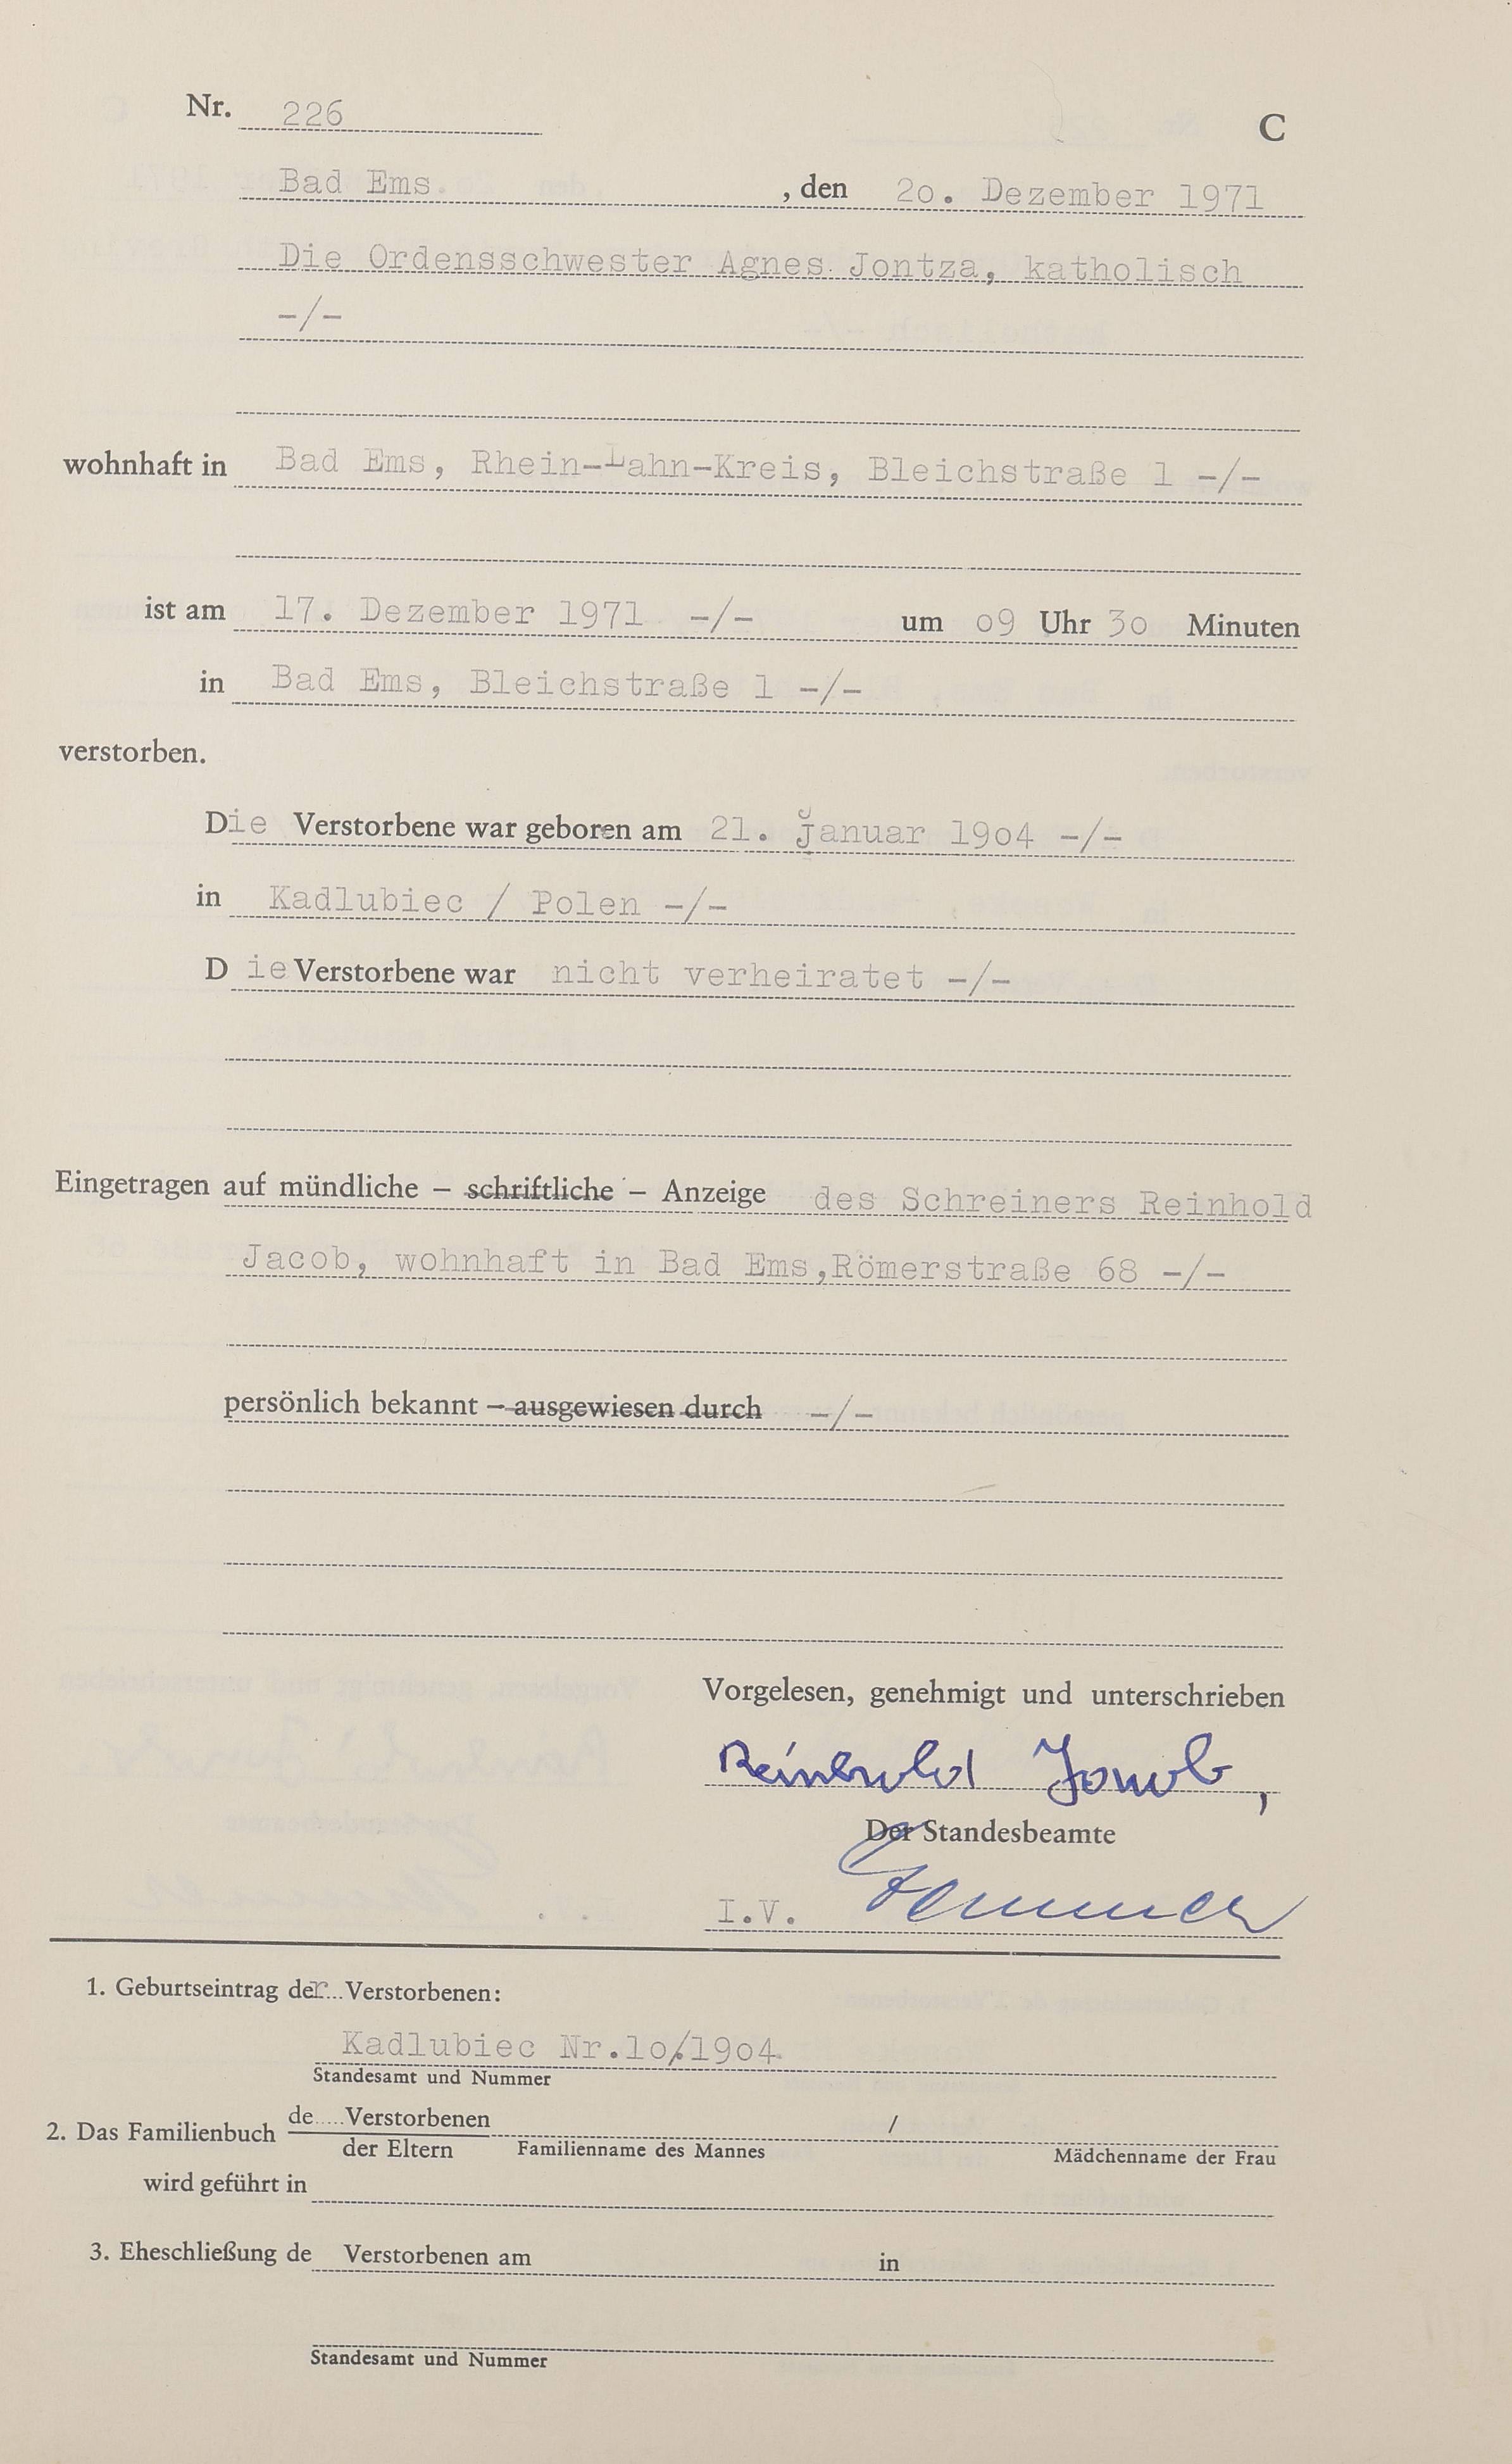 Nr. 226
C
Bad Ems. , den 2o. Dezember 1971
Die Ordensschwester Agnes Jontza, katholisch
-/-
wohnhaft in Bad Ems, Rhein-Lahn-Kreis, Bleichstraße 1 -/-
ist am 17. Dezember 1971 -/- um o9 Uhr 3o Minuten
in Bad Ems, Bleichstraße 1 -/-
verstorben.
Die Verstorbene war geboren am 21. Januar 19o4 -/-
in Kadlubiec / Polen -/-
Die Verstorbene war nicht verheiratet -/-
Eingetragen auf mündliche – schriftliche – Anzeige des Schreiners Reinhold
Jacob, wohnhaft in Bad Ems,Römerstraße 68 -/-
persönlich bekannt – ausgewiesen durch -/-
Vorgelesen, genehmigt und unterschrieben
Reinhold Jacob,
Der Standesbeamte
I.V.
1. Geburtseintrag der Verstorbenen:
Kadlubiec Nr.1o/19o4
Standesamt und Nummer
2. Das Familienbuch de Verstorbenen /
der Eltern Familienname des Mannes Mädchenname der Frau
wird geführt in
3. Eheschließung de Verstorbenen am in
Standesamt und Nummer